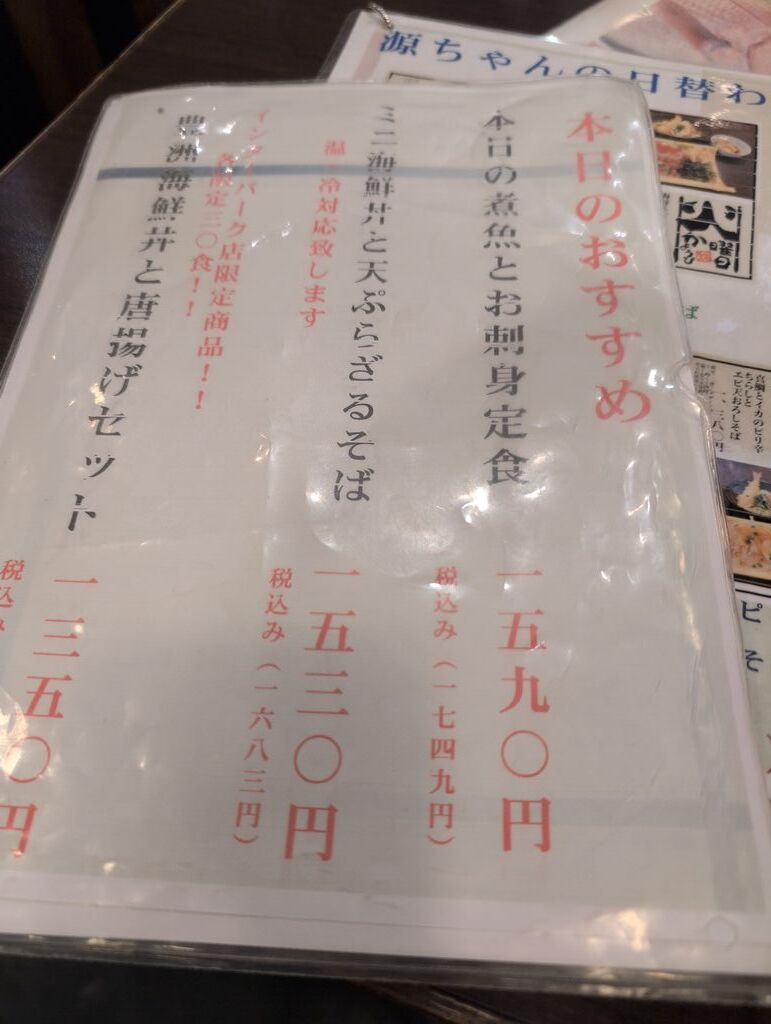 本日のおすすめ
本日の煮魚とお刺身定食
一五九〇円
税込み(一七四九円)
ミニ海鮮丼と天ぷらざるそば
温・冷対応致します
一五三〇円
税込み(一六八三円)
インターパーク店限定商品!!
各限定三〇食!!
豊洲海鮮丼と唐揚げセット
一三五〇円
税込み
源ちゃんの日替わ
火曜日
かようび
真鯛とイカのピリ辛
ちらしと
エビ天おろしそば
一、三八〇円
ば
ピ
そ